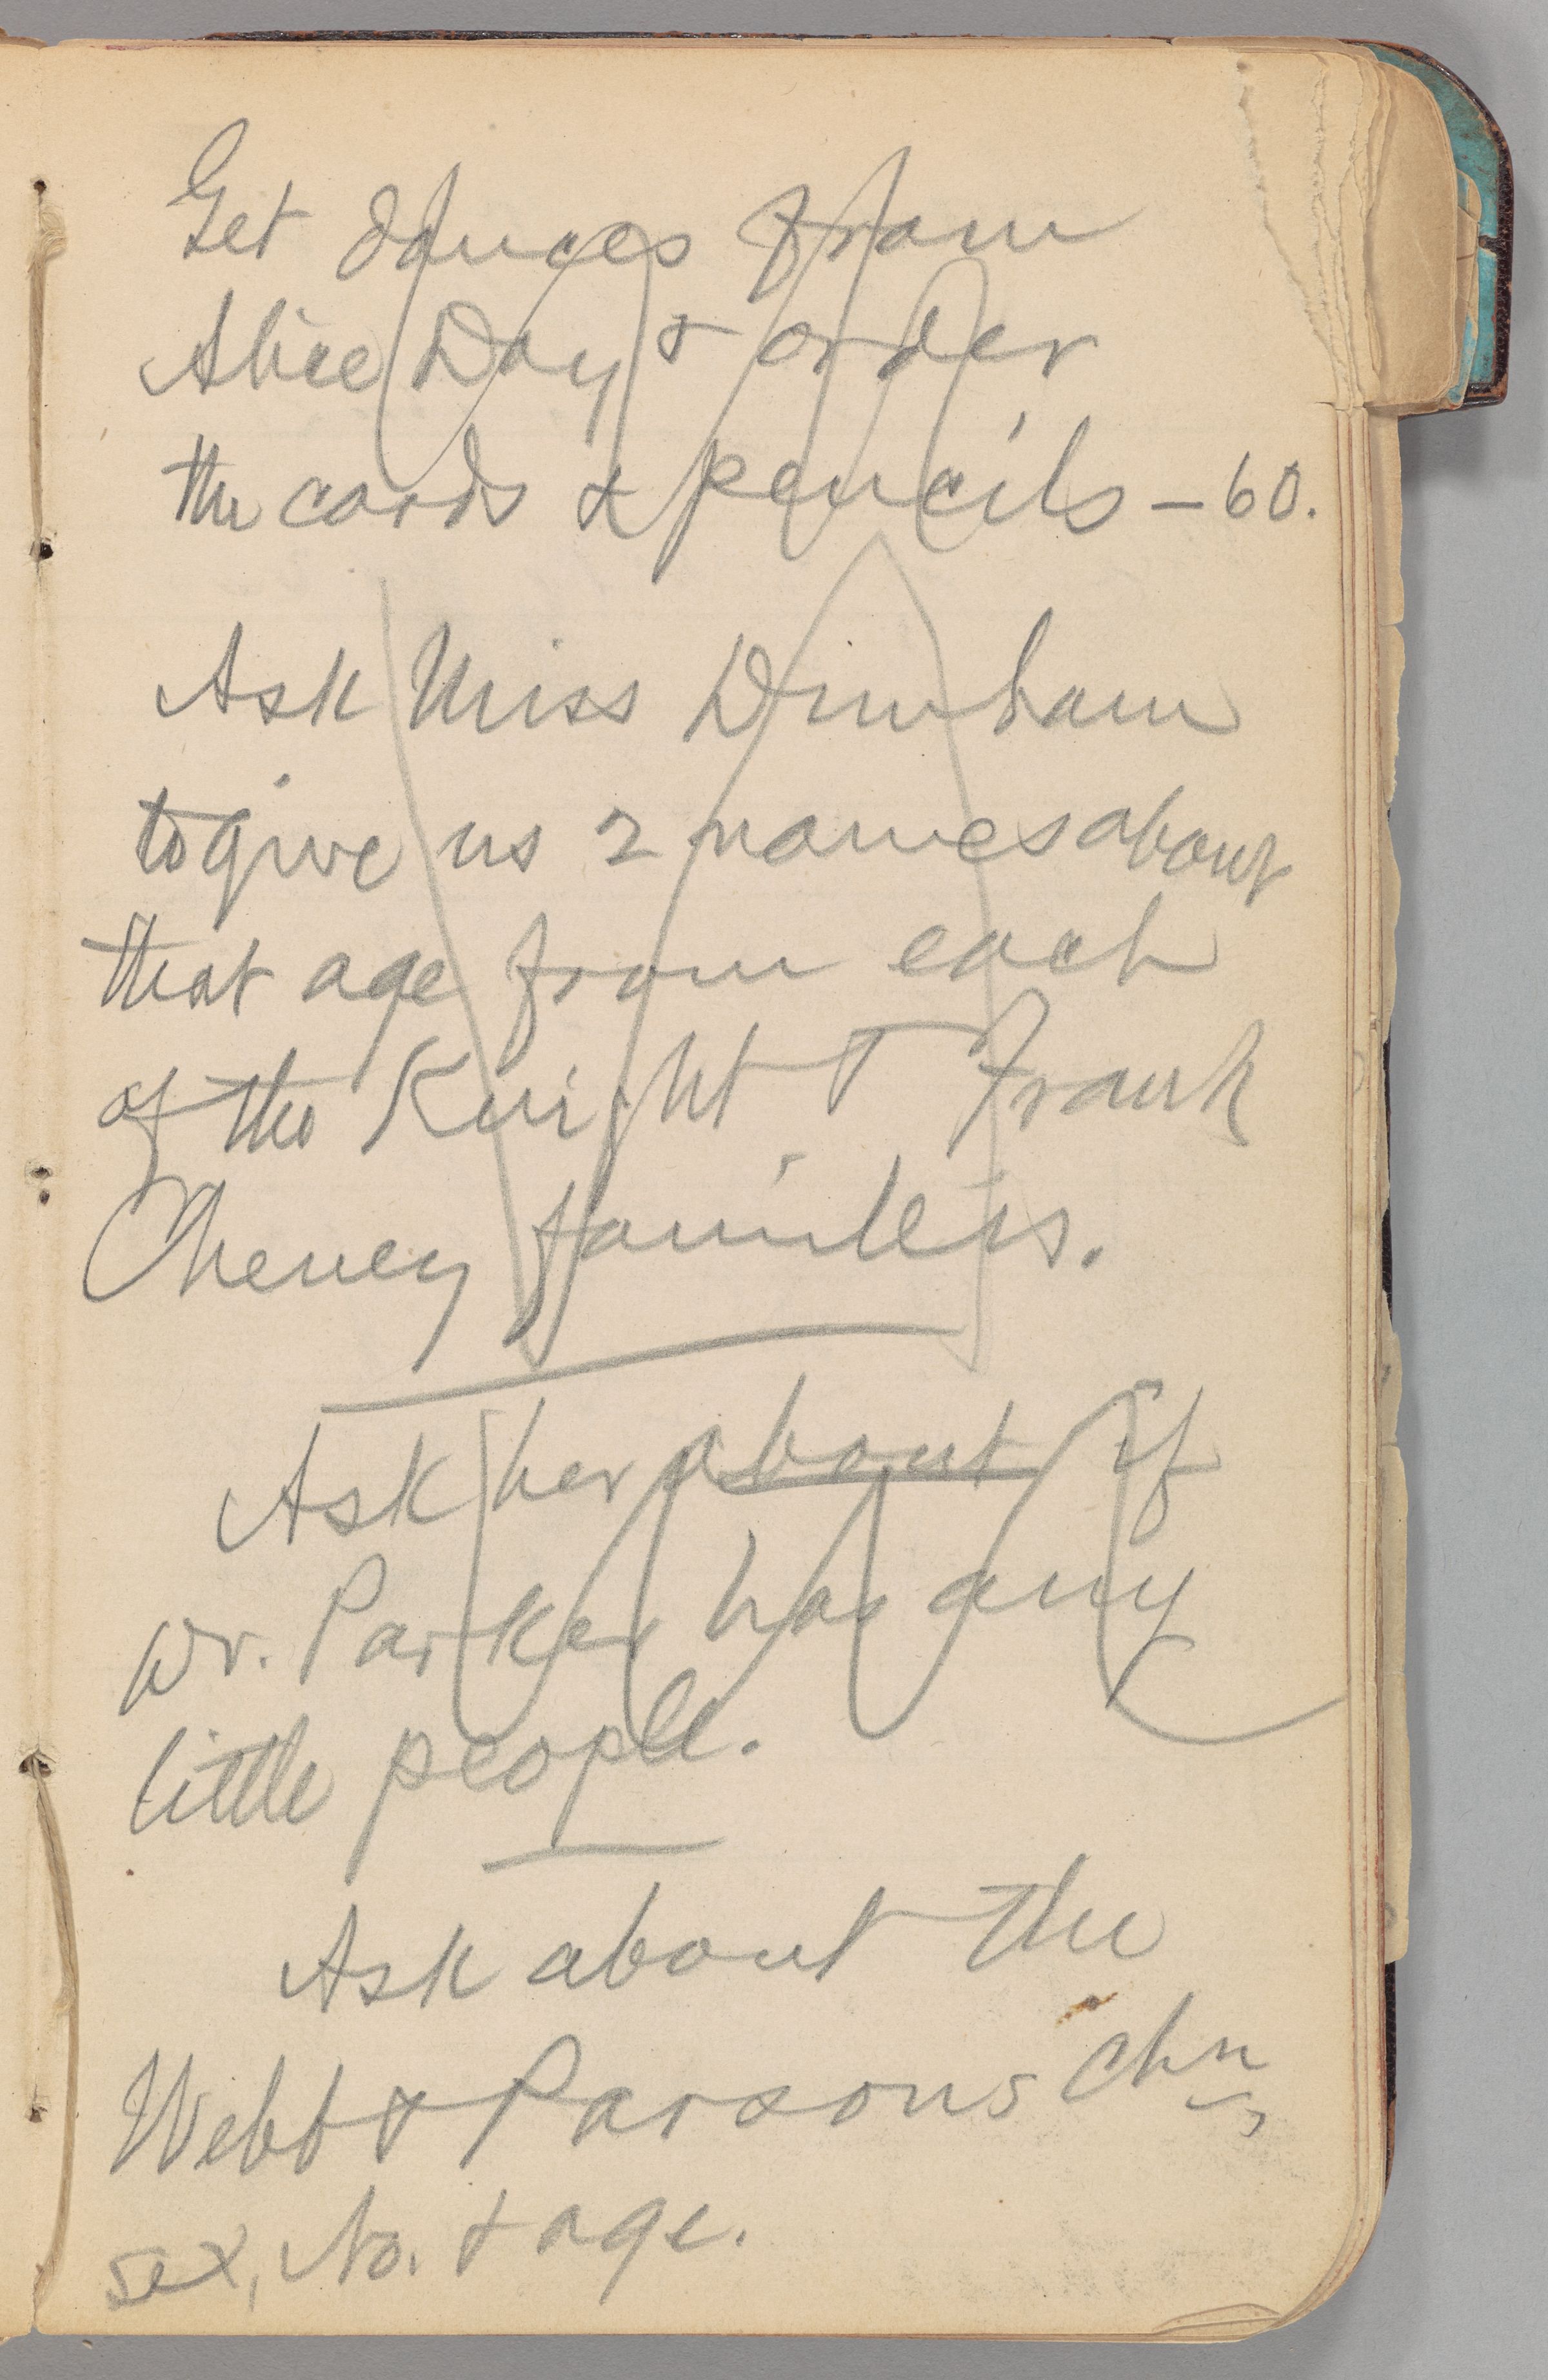 Get dances from
Alice Day & order
the cards & pencils – 60.
Ask Miss Dunham
to give us 2 names about
that age from each
of the Knight & Frank
Cheney families.
Ask her about if
Dr. Parker has any
little people.
Ask about the
Webb & Parsons chn
sex, No. & age.